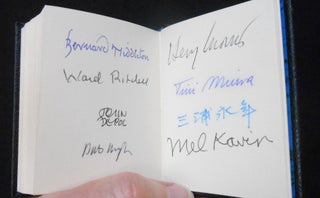 Bernard Middleton
Ward Ritchie
JOHN
DEPOL
Henry Morris
Tini Miura
三浦永年
Mel Kavin